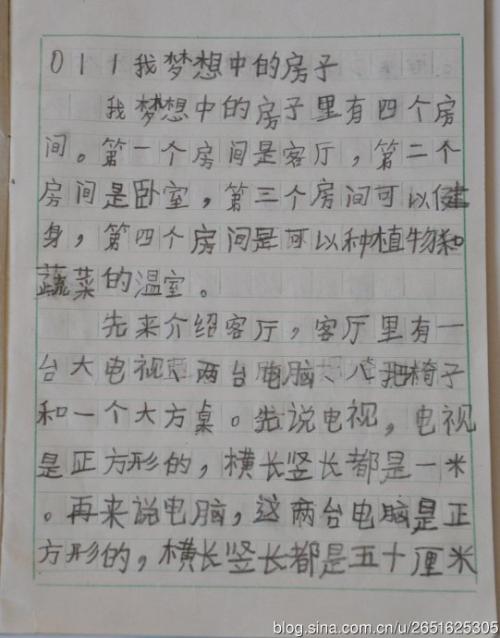 011我梦想中的房子
我梦想中的房子里有四个房
间。第一个房间是客厅，第二个
房间是卧室，第三个房间可以健
身，第四个房间是可以种植物和
蔬菜的温室。
先来介绍客厅，客厅里有一
台大电视、两台电脑、八把椅子
和一个大方桌。先说电视，电视
是正方形的，横长竖长都是一米
。再来说电脑，这两台电脑是正
方形的，横长竖长都是五十厘米
blog.sina.com.cn/u/2651625305